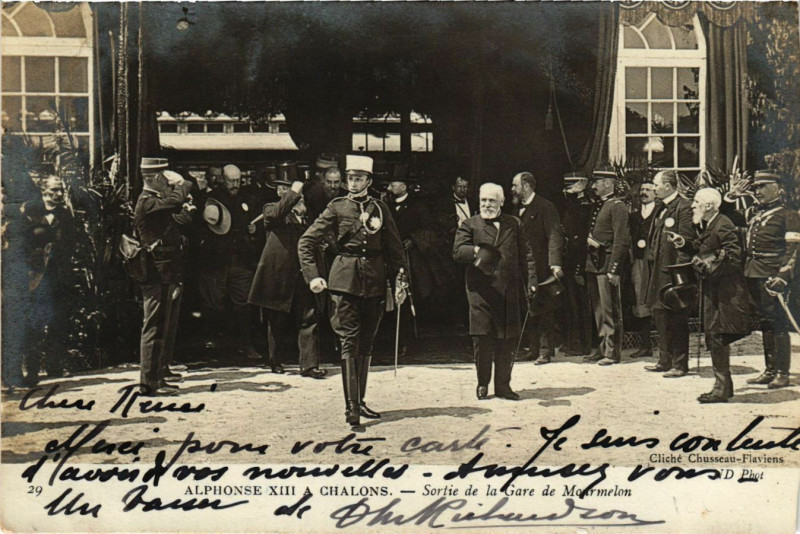 Chere Renée
Merci pour votre carte. Je suis contente
Cliché Chusseau-Flaviens
d'avoir de vos nouvelles - Amusez vous
ND Phot
29 ALPHONSE XIII A CHALONS. — Sortie de la Gare de Mourmelon
Un baiser de Richardson